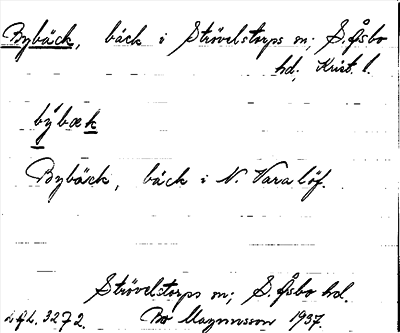 Bybäck, bäck i Strövelstorps sn; S. Åsbo
hd, Krist. l.
by`bæk
Bybäck, bäck i N. Varalöf.
Strövelstorps sn; S. Åsbo hd.
Magnusson 1937.